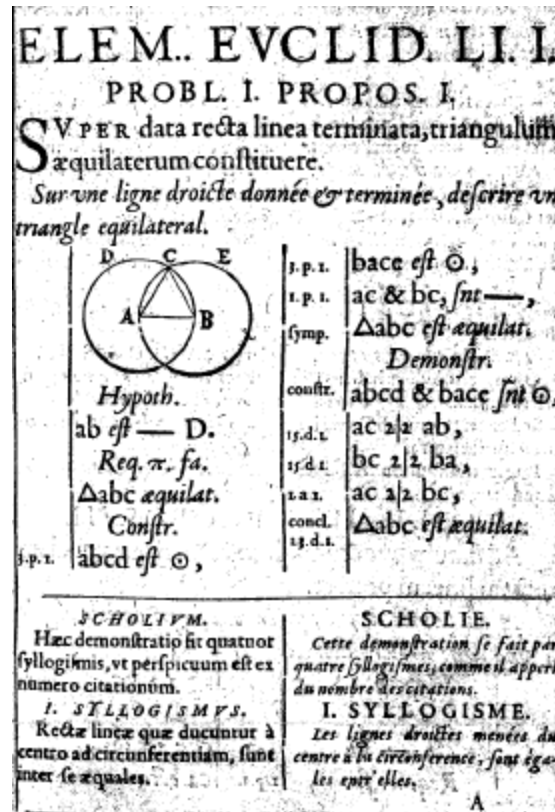 ELEM.. EVCLID. LI. I.
PROBL. I. PROPOS. I.
SVPER data recta linea terminata, triangulum
æquilaterum constituere.
Sur vne ligne droicte donnée & terminée, descrire vn
triangle equilateral.
D C E
A B
Hypoth.
ab est — D.
Req. π. fa.
Δabc æquilat.
Constr.
3.p.1. abcd est ⊙,
3.p.1. bace est ⊙,
1.p.1. ac & bc, snt —,
symp. Δabc est æquilat.
Demonstr.
constr. abcd & bace snt ⊙,
15.d.1. ac 2|2 ab,
15.d.1. bc 2|2 ba,
1.a.1. ac 2|2 bc,
concl. Δabc est æquilat.
23.d.1.
SCHOLIVM.
Hæc demonstratio fit quatuor
syllogismis, vt perspicuum est ex
numero citationum.
I. SYLLOGISMVS.
Rectæ lineæ quæ ducuntur à
centro ad circunferentiam, sunt
inter se æquales.
SCHOLIE.
Cette demonstration se fait par
quatre syllogismes, comme il appert
du nombre des citations.
I. SYLLOGISME.
Les lignes droictes menées du
centre à la circonference, sont éga-
les entr'elles.
A